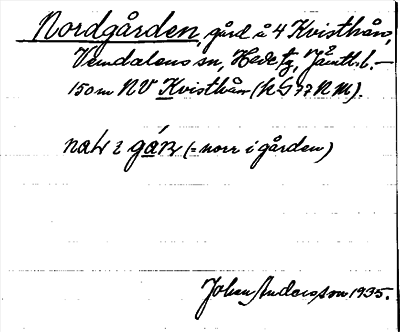 Nordgården, gård å 4 Kvisthån,
Vemdalens sn, Hede tg, Jämtl. l. —
150 m NV Kvisthån (h G 77 N M).
i gården)
Johan Andersson 1935.